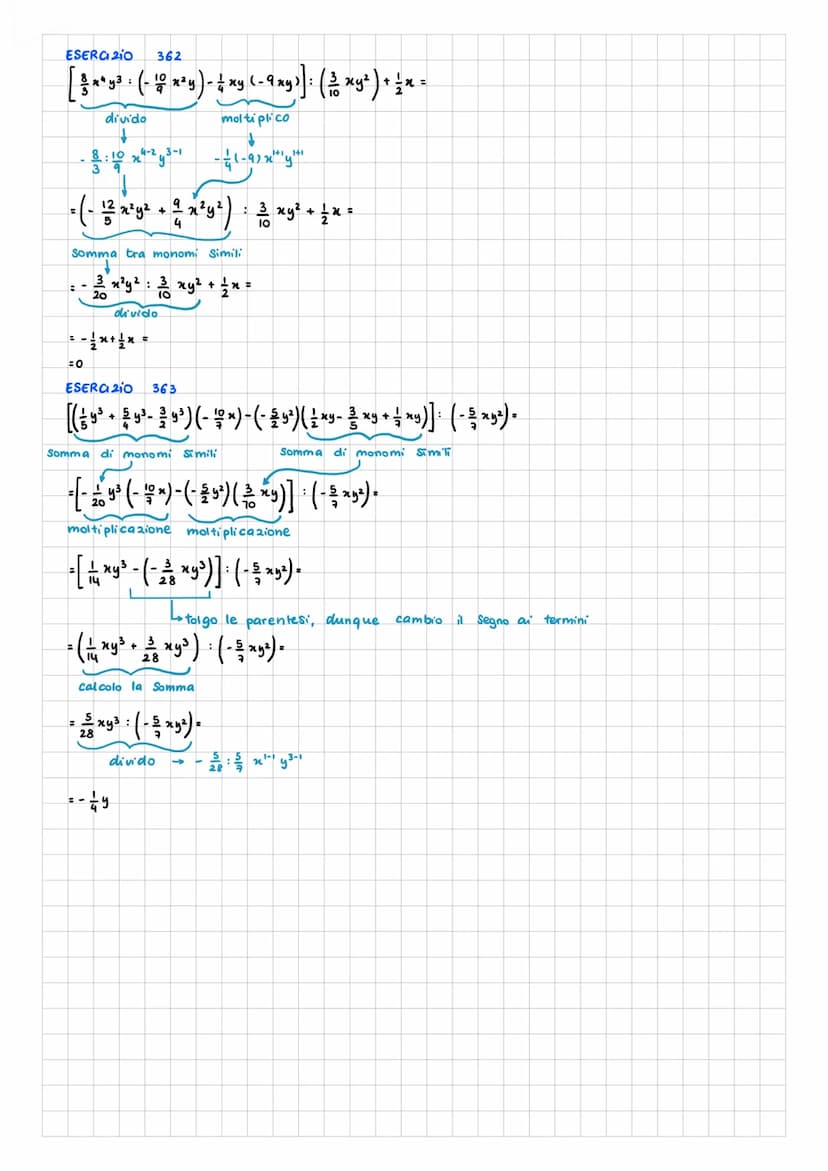 ESERCIZIO 362
[8/3 x⁴y³ : (-10/9 x²y) - 1/4 xy (-9xy)] : (3/10 xy²) + 1/2 x =
divido moltiplico
- 8/3 : 10/9 x⁴⁻² y³⁻¹ -1/4 (-9) x¹⁺¹ y¹⁺¹
= (- 12/5 x²y² + 9/4 x²y²) : 3/10 xy² + 1/2 x =
somma tra monomi simili
= - 3/20 x²y² : 3/10 xy² + 1/2 x =
divido
= - 1/2 x + 1/2 x =
=0
ESERCIZIO 363
[(1/5 y³ + 5/4 y³ - 3/2 y³)(- 10/7 x) - (- 5/2 y²)(1/2 xy - 3/5 xy + 1/7 xy)] : (- 5/7 xy²) =
somma di monomi simili somma di monomi simili
= [- 1/20 y³ (- 10/7 x) - (- 5/2 y²)(3/70 xy)] : (- 5/7 xy²) =
moltiplicazione moltiplicazione
= [1/14 xy³ - (- 3/28 xy³)] : (- 5/7 xy²) =
tolgo le parentesi, dunque cambio il segno ai termini
= (1/14 xy³ + 3/28 xy³) : (- 5/7 xy²) =
calcolo la somma
= 5/28 xy³ : (- 5/7 xy²) =
divido → - 5/28 : 5/7 x¹⁻¹ y³⁻¹
= - 1/4 y